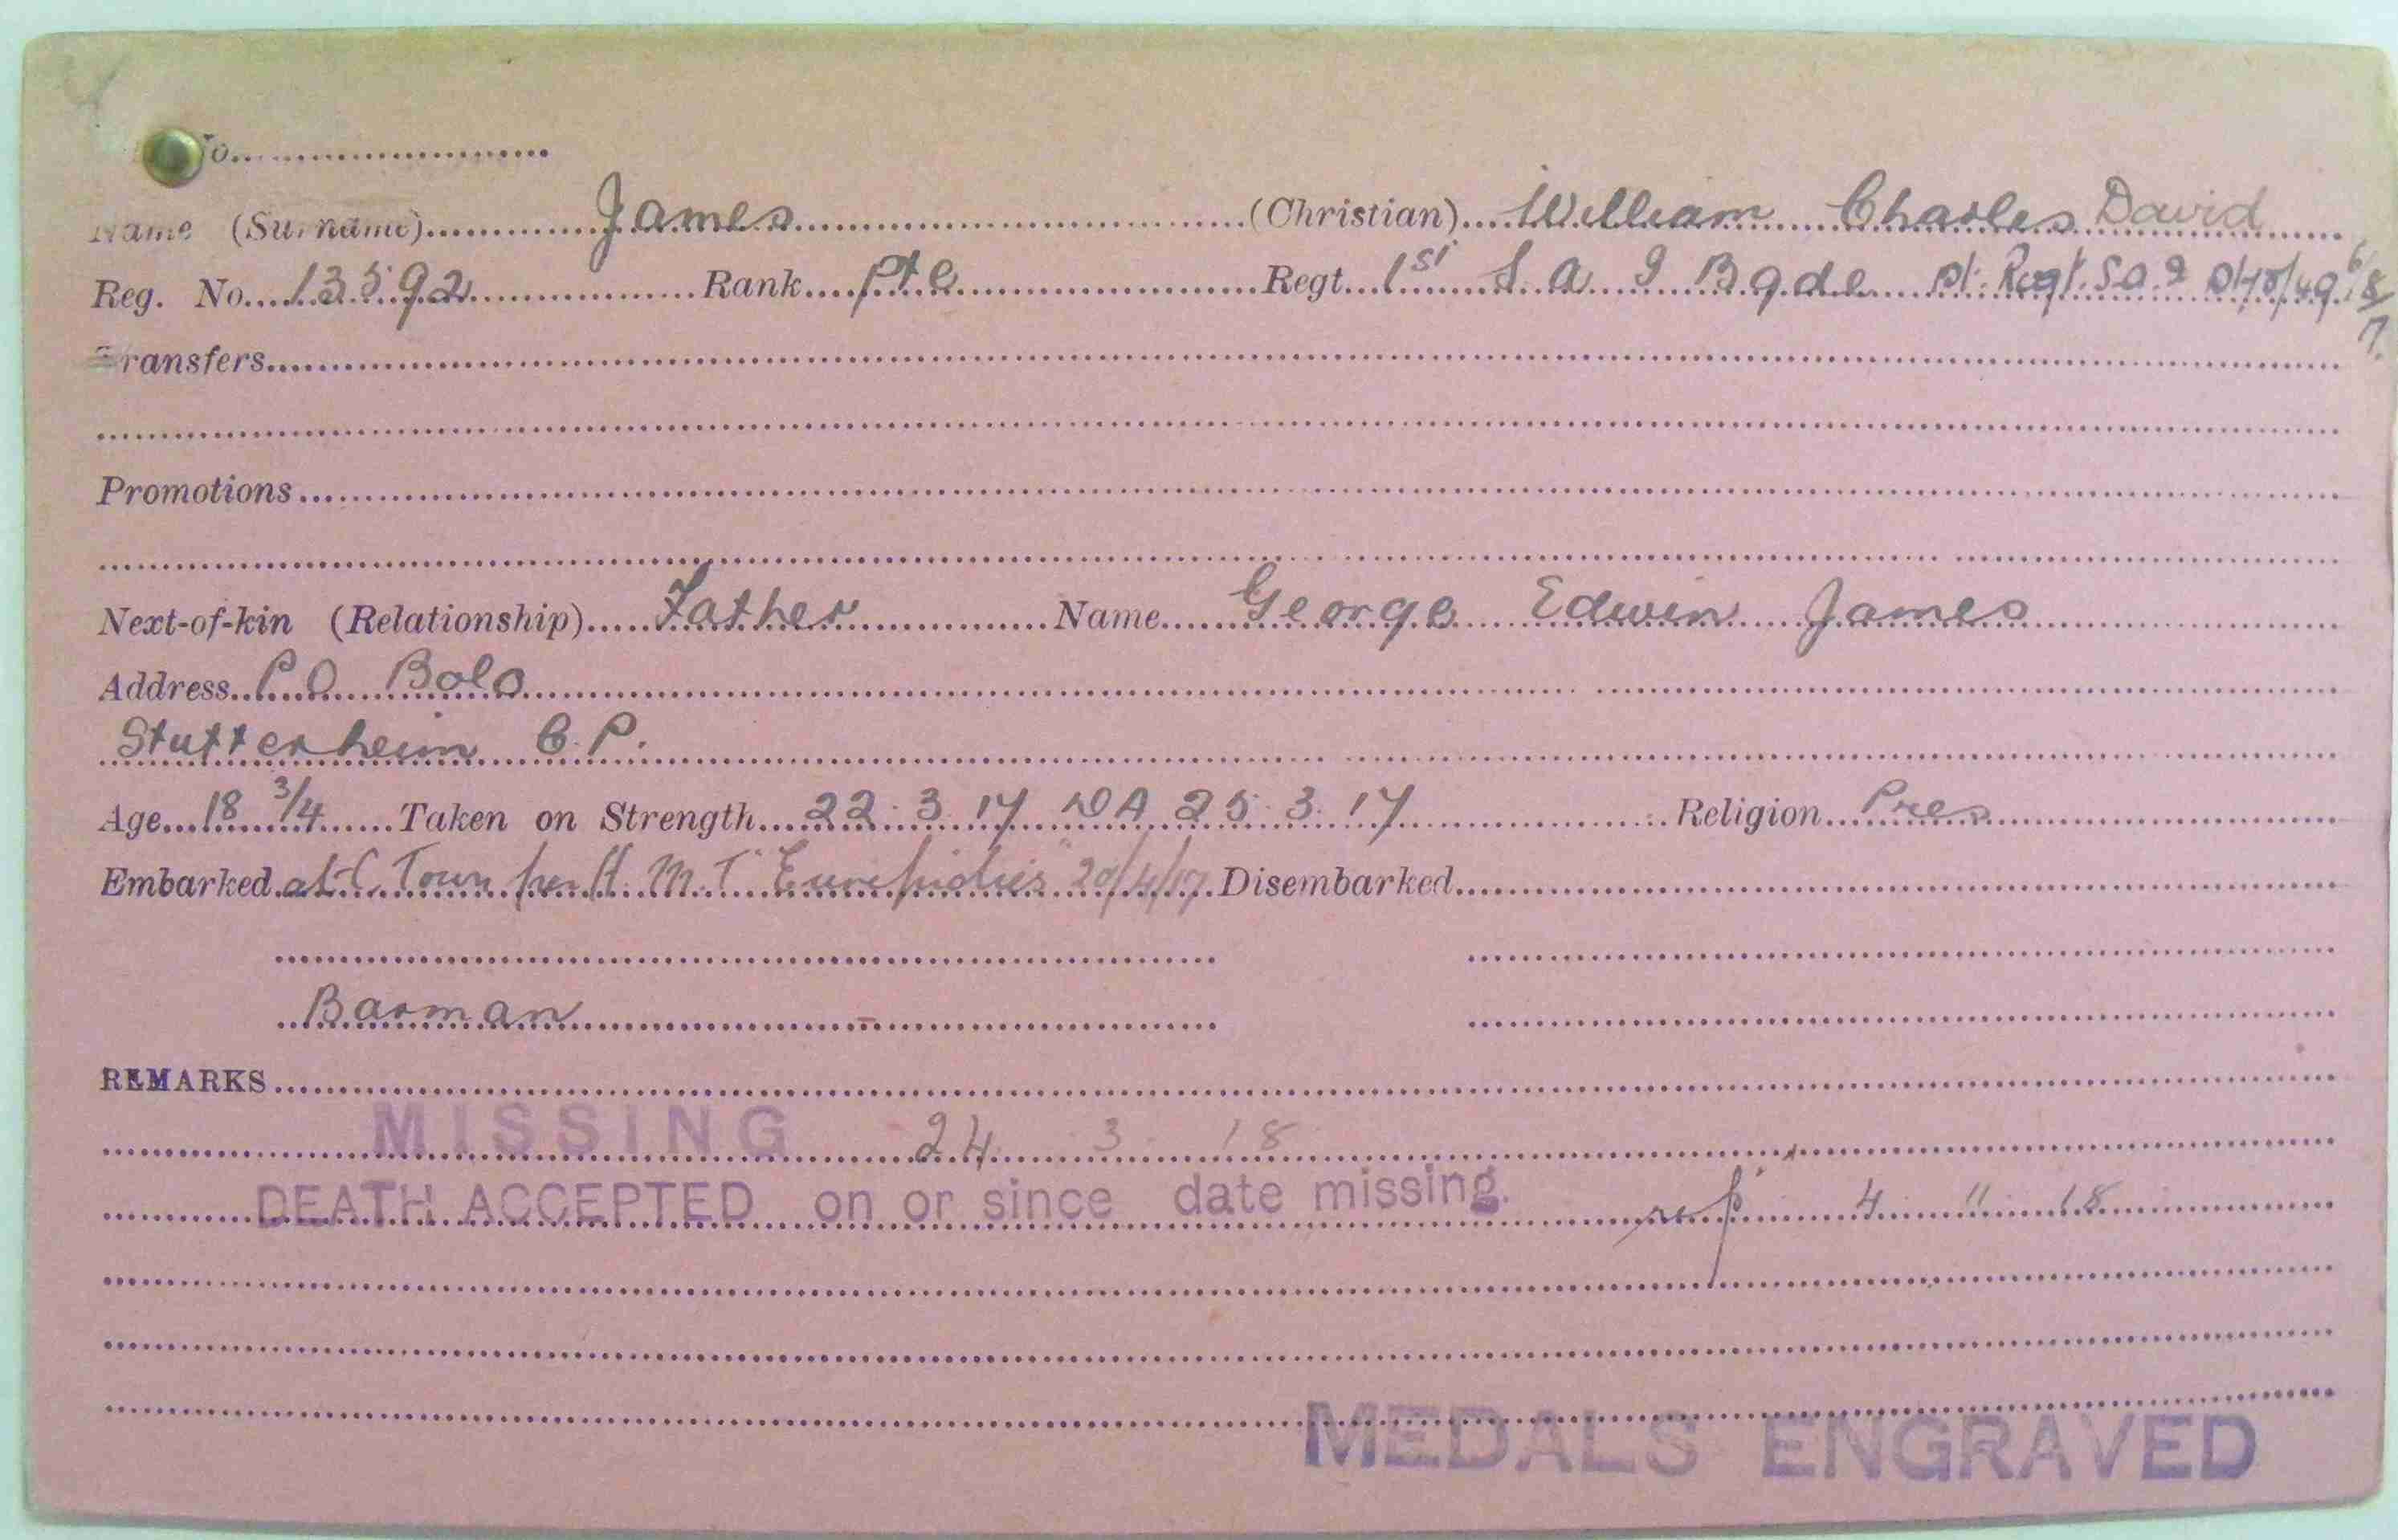 No
Name (Surname) James (Christian) William Charles David
Reg. No. 13592 Rank Pte Regt. 1st S. A. I Bgde
Transfers
Promotions
Next-of-kin (Relationship) Father Name George Edwin James
Address P.O Bolo
Stutterheim C.P.
Age 18 3/4 Taken on Strength 22.3.17 DA 25.3.17 Religion Pres
Embarked at C Town per H.M.T. "Euripides" 20/4/17 Disembarked
Barman
REMARKS
MISSING 24 3 18
DEATH ACCEPTED on or since date missing. 4 11 18
MEDALS ENGRAVED